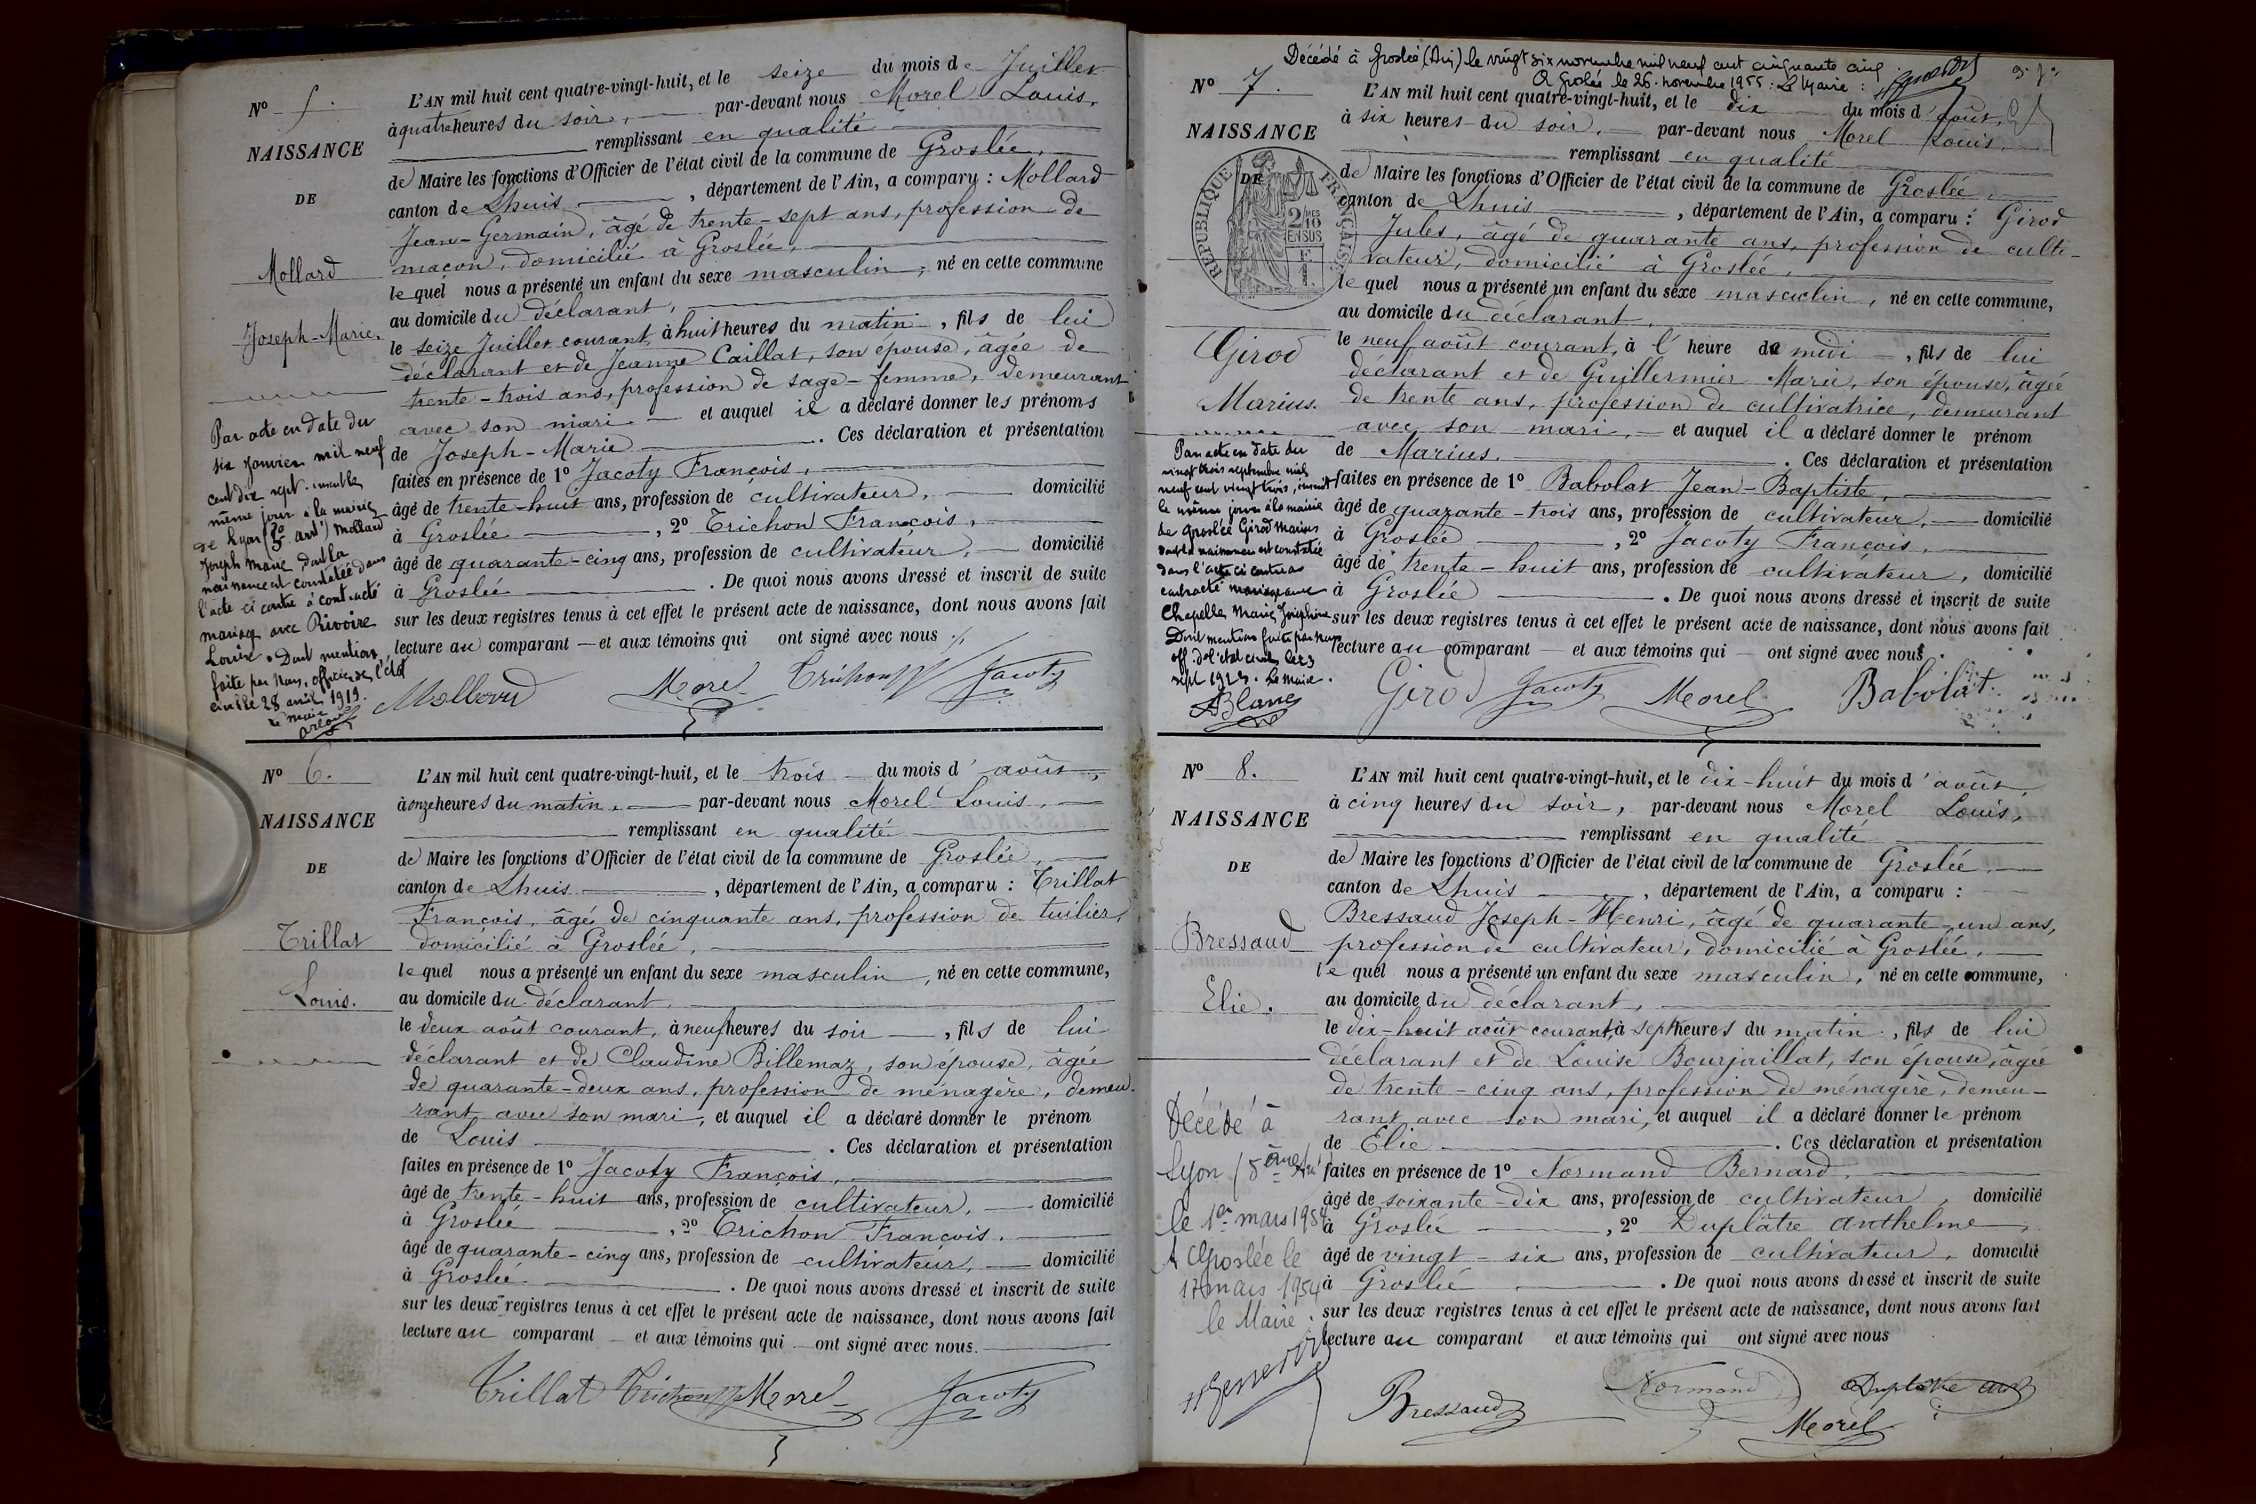 N° 5.
NAISSANCE
DE
Mollard
Joseph-Marie.
L'AN mil huit cent quatre-vingt-huit, et le seize du mois de Juillet
à quatre heures du soir, par-devant nous Morel Louis,
remplissant en qualité
de Maire les fonctions d'Officier de l'état civil de la commune de Groslée,
canton de Lhuis, département de l'Ain, a comparu : Mollard
Jean-Germain, âgé de trente-sept ans, profession de
maçon, domicilié à Groslée,
lequel nous a présenté un enfant du sexe masculin, né en cette commune
au domicile du déclarant,
le seize Juillet courant, à huit heures du matin, fils de lui
déclarant et de Jeanne Caillat, son épouse, âgée de
trente-trois ans, profession de sage-femme, demeurant
avec son mari et auquel il a déclaré donner les prénoms
de Joseph-Marie. Ces déclaration et présentation
faites en présence de 1° Jacoty François,
âgé de trente-huit ans, profession de cultivateur, domicilié
à Groslée, 2° Trichon François,
âgé de quarante-cinq ans, profession de cultivateur, domicilié
à Groslée. De quoi nous avons dressé et inscrit de suite
sur les deux registres tenus à cet effet le présent acte de naissance, dont nous avons fait
lecture au comparant et aux témoins qui ont signé avec nous.
Par acte en date du
six Janvier mil neuf
cent dix sept inscrit le
même jour à la mairie
de Lyon (5e ardt) Mollard
Joseph Marie dont la
naissance est constatée dans
l'acte ci contre a contracté
mariage avec Rivoire
Louise. Dont mention
faite par Nous, officier de l'état
civil le 28 avril 1919.
Le maire
Mollard Morel Trichon Jacoty
N° 6.
NAISSANCE
DE
Trillat
Louis.
L'AN mil huit cent quatre-vingt-huit, et le trois du mois d'août,
à onze heures du matin, par-devant nous Morel Louis,
remplissant en qualité
de Maire les fonctions d'Officier de l'état civil de la commune de Groslée,
canton de Lhuis, département de l'Ain, a comparu : Trillat
François, âgé de cinquante ans, profession de tuilier,
domicilié à Groslée,
lequel nous a présenté un enfant du sexe masculin, né en cette commune,
au domicile du déclarant,
le deux août courant, à neuf heures du soir, fils de lui
déclarant et de Claudine Billemaz, son épouse, âgée
de quarante-deux ans, profession de ménagère, demeu-
rant avec son mari, et auquel il a déclaré donner le prénom
de Louis. Ces déclaration et présentation
faites en présence de 1° Jacoty François,
âgé de trente-huit ans, profession de cultivateur, domicilié
à Groslée, 2° Trichon François,
âgé de quarante-cinq ans, profession de cultivateur, domicilié
à Groslée. De quoi nous avons dressé et inscrit de suite
sur les deux registres tenus à cet effet le présent acte de naissance, dont nous avons fait
lecture au comparant et aux témoins qui ont signé avec nous.
Trillat Trichon Morel Jacoty
Décédé à Groslée (Ain) le vingt six novembre mil neuf cent cinquante cinq.
A Groslée le 26 novembre 1955 : Le Maire :
N° 7.
NAISSANCE
DE
RÉPUBLIQUE FRANÇAISE
2 MES
10
EN SUS
Girod
Marius.
L'AN mil huit cent quatre-vingt-huit, et le dix du mois d'août,
à six heures du soir, par-devant nous Morel Louis,
remplissant en qualité
de Maire les fonctions d'Officier de l'état civil de la commune de Groslée,
canton de Lhuis, département de l'Ain, a comparu : Girod
Jules, âgé de quarante ans, profession de culti-
vateur, domicilié à Groslée,
lequel nous a présenté un enfant du sexe masculin, né en cette commune,
au domicile du déclarant,
le neuf août courant, à l'heure de midi, fils de lui
déclarant et de Guillermier Marie, son épouse, âgée
de trente ans, profession de cultivatrice, demeurant
avec son mari, et auquel il a déclaré donner le prénom
de Marius. Ces déclaration et présentation
faites en présence de 1° Babolat Jean-Baptiste,
âgé de quarante-trois ans, profession de cultivateur, domicilié
à Groslée, 2° Jacoty François,
âgé de trente-huit ans, profession de cultivateur, domicilié
à Groslée. De quoi nous avons dressé et inscrit de suite
sur les deux registres tenus à cet effet le présent acte de naissance, dont nous avons fait
lecture au comparant et aux témoins qui ont signé avec nous.
Par acte en date du
vingt trois septembre mil
neuf cent vingt trois, inscrit
le même jour à la mairie
de Groslée Girod Marius
dont la naissance est constatée
dans l'acte ci contre a
contracté mariage avec
Chapelle Marie Joséphine
Dont mention faite par Nous
off. de l'état civil le 23
sept 1923. Le Maire.
Blanc
Girod Jacoty Morel Babolat
N° 8.
NAISSANCE
DE
Bressaud
Elie.
L'AN mil huit cent quatre-vingt-huit, et le dix-huit du mois d'août,
à cinq heures du soir, par-devant nous Morel Louis,
remplissant en qualité
de Maire les fonctions d'Officier de l'état civil de la commune de Groslée
canton de Lhuis, département de l'Ain, a comparu :
Bressaud Joseph-Henri, âgé de quarante-un ans,
profession de cultivateur, domicilié à Groslée,
lequel nous a présenté un enfant du sexe masculin, né en cette commune,
au domicile du déclarant,
le dix-huit août courant, à sept heures du matin, fils de lui
déclarant et de Louise Bourjaillat, son épouse, âgée
de trente-cinq ans, profession de ménagère, demeu-
rant avec son mari, et auquel il a déclaré donner le prénom
de Elie. Ces déclaration et présentation
faites en présence de 1° Normand Bernard,
âgé de soixante-dix ans, profession de cultivateur, domicilié
à Groslée, 2° Duplâtre Anthelme,
âgé de vingt-six ans, profession de cultivateur, domicilié
à Groslée. De quoi nous avons dressé et inscrit de suite
sur les deux registres tenus à cet effet le présent acte de naissance, dont nous avons fait
lecture au comparant et aux témoins qui ont signé avec nous
Décédé à
Lyon (5ème Arrt
le 1er mars 1954
A Groslée le
17 mars 1954
le Maire.
Bressaud Normand Duplâtre
Morel